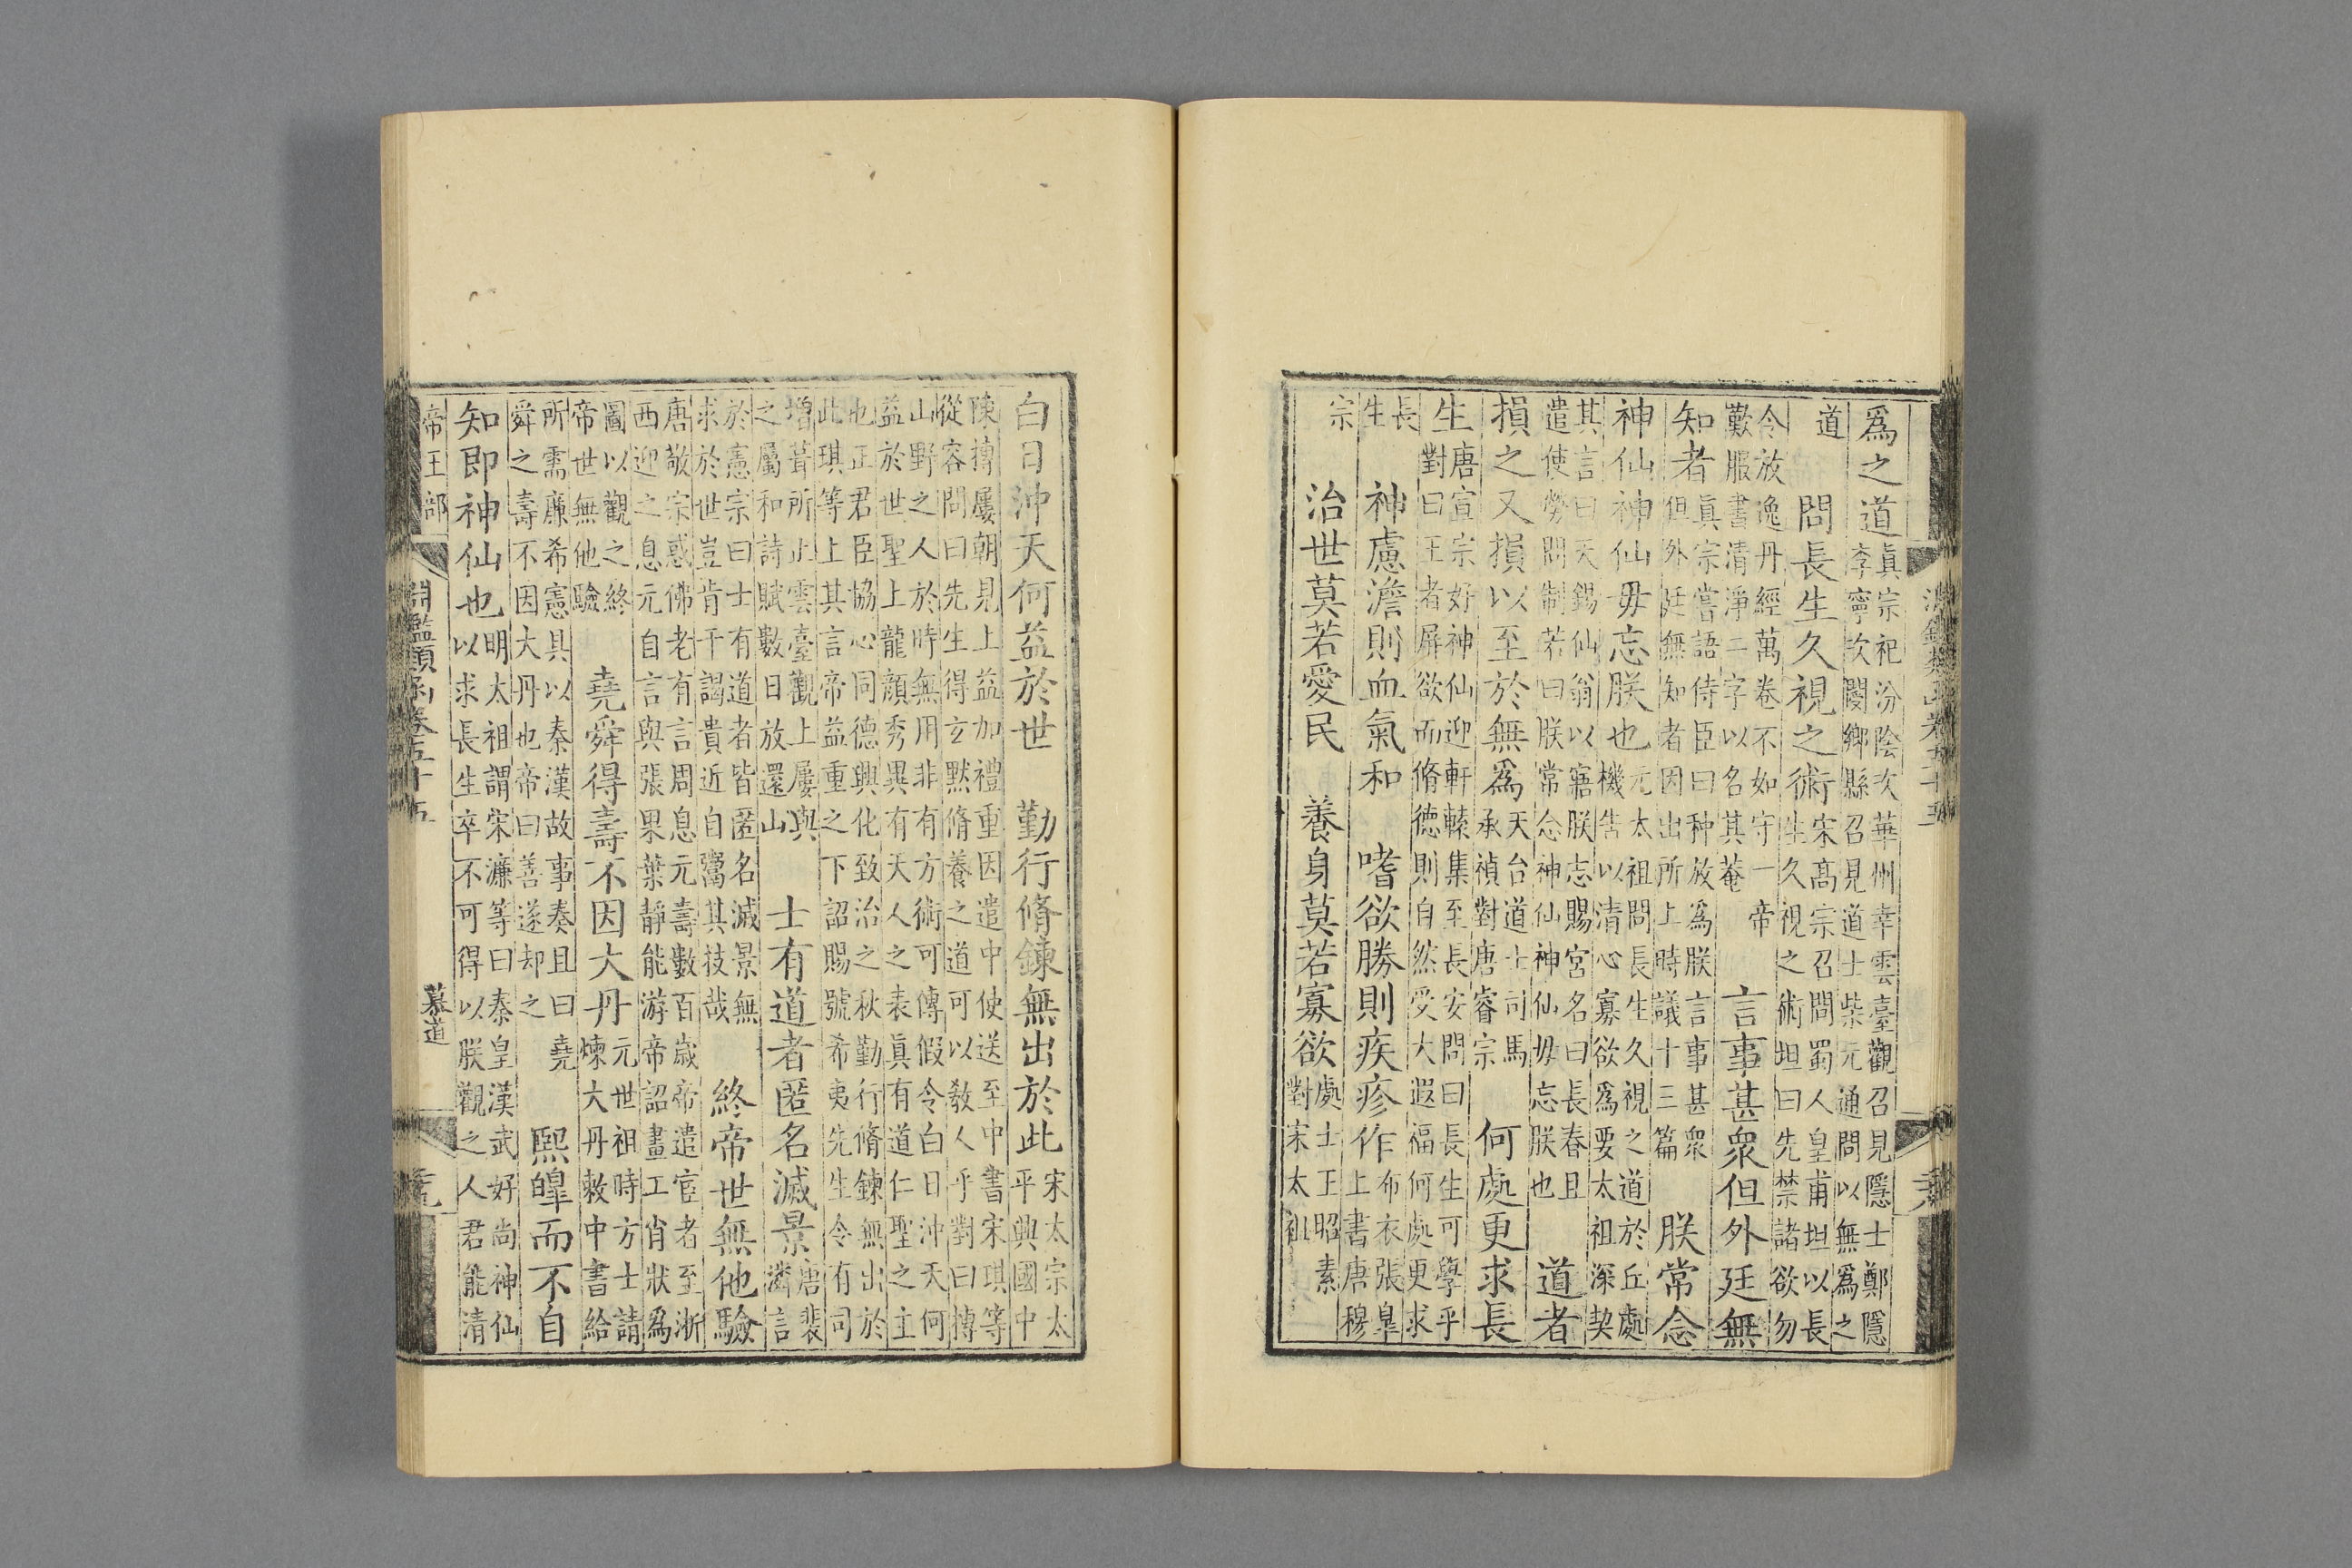 爲之道眞宗祀汾陰次華州幸雲臺觀召見隱士鄭隱李寧次閿鄉縣召見道士柴元通問以無爲之
道　問長生久視之術宋高宗召問蜀人皇甫坦以長生久視之術坦曰先禁諸欲勿
令放逸丹經萬卷不如守一帝歎服書清淨二字以名其菴　言事甚衆但外廷無
知者眞宗嘗語侍臣曰种放爲朕言事甚衆但外廷無知者因出所上時議十三篇　朕常念
神仙神仙毋忘朕也元太祖問長生久視之道於丘處機告以清心寡欲爲要太祖深契
其言曰天錫仙翁以寤朕志賜宮名曰長春且遣使勞問制若曰朕常念神仙神仙毋忘朕也　道者
損之又損以至於無爲天台道士司馬承禎對唐睿宗　何處更求長
生唐宣宗好神仙迎軒轅集至長安問曰長生可學乎對曰王者屏欲而脩德則自然受大遐福何處更求
長生　神慮澹則血氣和　嗜欲勝則疾疹作布衣張臯上書唐穆
宗　治世莫若愛民　養身莫若寡欲處士王昭素對宋太祖
白日沖天何益於世　勤行脩鍊無出於此宋太宗太平興國中
陳摶屢朝見上益加禮重因遣中使送至中書宋琪等從容問曰先生得玄默脩養之道可以敎人乎對曰摶
山野之人於時無用非有方術可傳假令白日沖天何益於世聖上龍顏秀異有天人之表眞有道仁聖之主
也正君臣協心同德興化致治之秋勤行脩鍊無出於此琪等上其言帝益重之下詔賜號希夷先生令有司
增葺所止雲臺觀上屢與之屬和詩賦數日放還山　士有道者匿名滅景唐裴潾言
於憲宗曰士有道者皆匿名滅景無求於世豈肯干謁貴近自鬻其技哉　終帝世無他驗
唐敬宗惑佛老有言周息元壽數百歲帝遣宦者至浙西迎之息元自言與張果葉靜能游帝詔畫工肖狀爲
圖以觀之終帝世無他驗　堯舜得壽不因大丹元世祖時方士請煉大丹敕中書給
所需廉希憲具以秦漢故事奏且曰堯舜之壽不因大丹也帝曰善遂却之　熙皥而不自
知即神仙也明太祖謂宋濂等曰秦皇漢武好尚神仙以求長生卒不可得以朕觀之人君能清
帝王部　淵鑑類函卷五十五　慕道